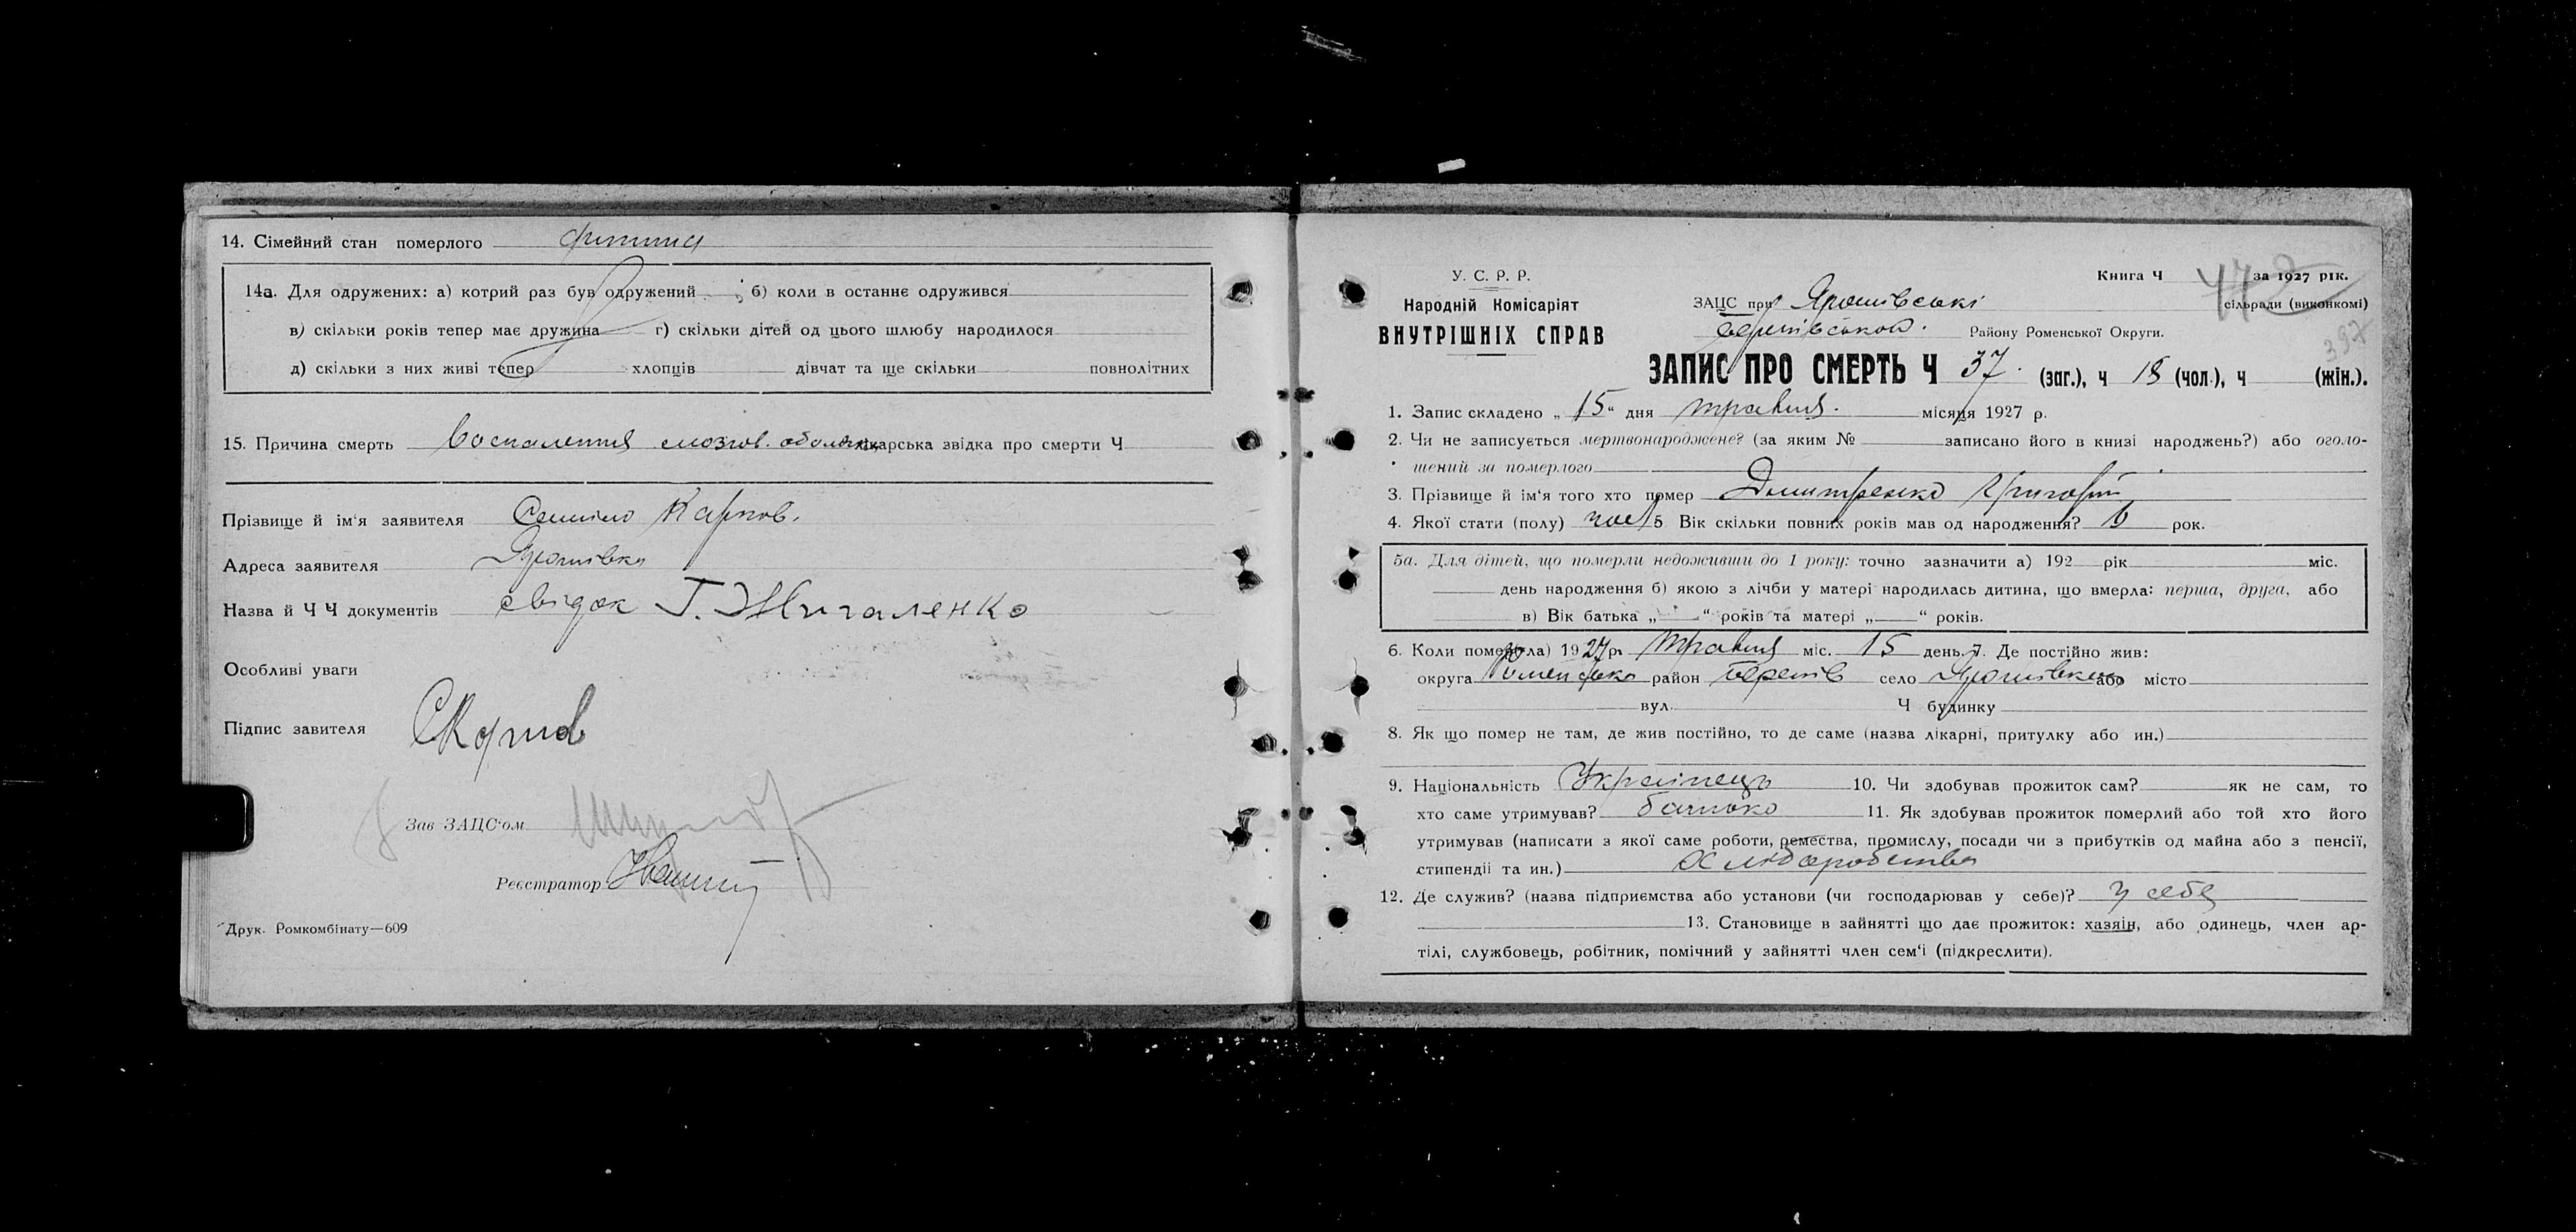 14. Сімейний стан померлого дитина
14а. Для одружених: а) котрий раз був одружений б) коли в останнє одружився
в) скільки років тепер має дружина г) скільки дітей од цього шлюбу народилося
д) скільки з них живі тепер хлопців дівчат та ще скільки повнолітних
15. Причина смерть Воспаления мозгов. оболочк лікарська звідка про смерти Ч
Прізвище й ім'я заявителя Карпов.
Адреса заявителя Ярошівка
Назва й Ч Ч документів свідок Г. Жигаленко
Особливі уваги
Підпис завителя СКарпов
Зав ЗАЦС'ом
Реєстратор
Друк. Ромкомбінату—609
У. С. Р. Р.
Народній Комісаріят
ВНУТРІШНІХ СПРАВ
Книга Ч 47 за 1927 рік.
ЗАЦС при Ярошівські сільради (виконкомі)
Району Роменської Округи.
397
ЗАПИС ПРО СМЕРТЬ Ч 37. (заг.), ч 18 (чол.), ч (жін.).
1. Запис складено „ 15 " дня травня. місяця 1927 р.
2. Чи не записується мертвонароджене? (за яким № записано його в книзі народжень?) або оголо-
шений за померлого
3. Прізвище й ім'я того хто помер Димитренко Григорій
4. Якої стати (полу) чол 5 Вік скільки повних років мав од народження? 6 рок.
5а. Для дітей, що померли недоживши до 1 року: точно зазначити а) 192 рік міс.
день народження б) якою з лічби у матері народилась дитина, що вмерла: перша, друга, або
в) Вік батька „ " років та матері „ " років.
6. Коли помер(ла) 1927 р. травня міс. 15 день. 7. Де постійно жив:
округа Роменська район Перетів село Ярошівка або місто
вул. Ч будинку
8. Як що помер не там, де жив постійно, то де саме (назва лікарні, притулку або ин.)
9. Національність Українець 10. Чи здобував прожиток сам? як не сам, то
хто саме утримував? батько 11. Як здобував прожиток померлий або той хто його
утримував (написати з якої саме роботи, ремества, промислу, посади чи з прибутків од майна або з пенсії,
стипендії та ин.) Хліборобства
12. Де служив? (назва підприємства або установи (чи господарював у себе)? у себе
13. Становище в зайнятті що дає прожиток: хазяїн, або одинець, член ар-
тілі, службовець, робітник, помічний у зайнятті член сем'ї (підкреслити).